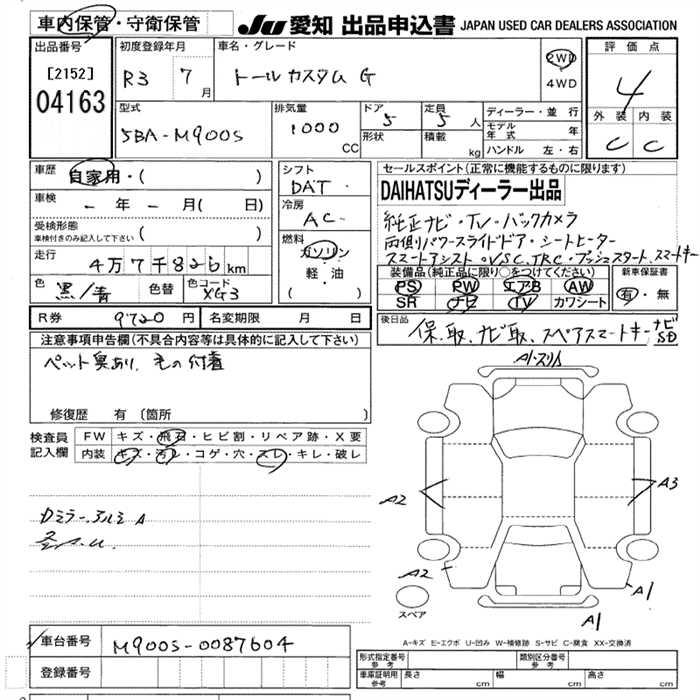 車内保管・守衛保管
JU 愛知 出品申込書 JAPAN USED CAR DEALERS ASSOCIATION
出品番号
[2152]
04163
初度登録年月
R3 7月
車名・グレード
トールカスタム G
2WD
4WD
評価点
4
外装 内装
C C
型式
5BA-M900S
排気量
1000 CC
ドア
5
形状
定員
5人
積載
kg
ディーラー・並行
モデル年式 年
ハンドル 左・右
車歴
自家用・( )
車検
- 年 - 月( 日)
受検形態
車検付きのみ記入して下さい ( )
走行
4万7千826km
色
黒/青
色替
色コード
XG3
シフト
DAT
冷房
AC
燃料
ガソリン
軽・油
( )
セールスポイント(正常に機能するものに限ります)
DAIHATSUディーラー出品
純正ナビ・TV・バックカメラ
両側パワースライドドア・シートヒーター
スマートアシスト・VSC、TRC・プッシュスタート、スマートキー
装備品(純正品に限り○をつけてください)
PS PW エアB AW
SR ナビ TV カワシート
新車保証書
有・無
R券 9720円
名変期限 月 日
後日品
保、取、ナビ取、スペアスマートキー ナビSD
注意事項申告欄(不具合内容等は具体的に記入して下さい)
ペット臭あり、毛の付着
修復歴 有 (箇所 )
検査員記入欄
FW キズ・飛石・ヒビ割・リペア跡・X要
内装 キズ・汚レ・コゲ・穴・スレ・キレ・破レ
ドミラー、アルミ A
A1・スリA
A2
A3
A2
A1
A1
スペア
A-キズ E-エクボ U-凹み W-補修跡 S-サビ C-腐食 XX-交換済
車台番号 M900S-0087604
登録番号
形式指定番号 参考
類別区分番号 参考
車庫証明用 参考 長さ cm 幅 cm 高さ cm